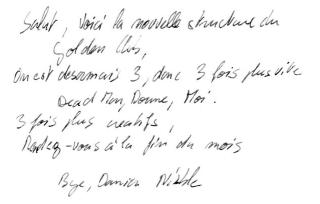 Salut, Voici la nouvelle structure du
Golden Chis,
On est desormais 3, donc 3 fois plus vite
Dead Man, Donne, Moi.
3 fois plus creatifs,
Rendez-vous à la fin du mois
Bye, Damien